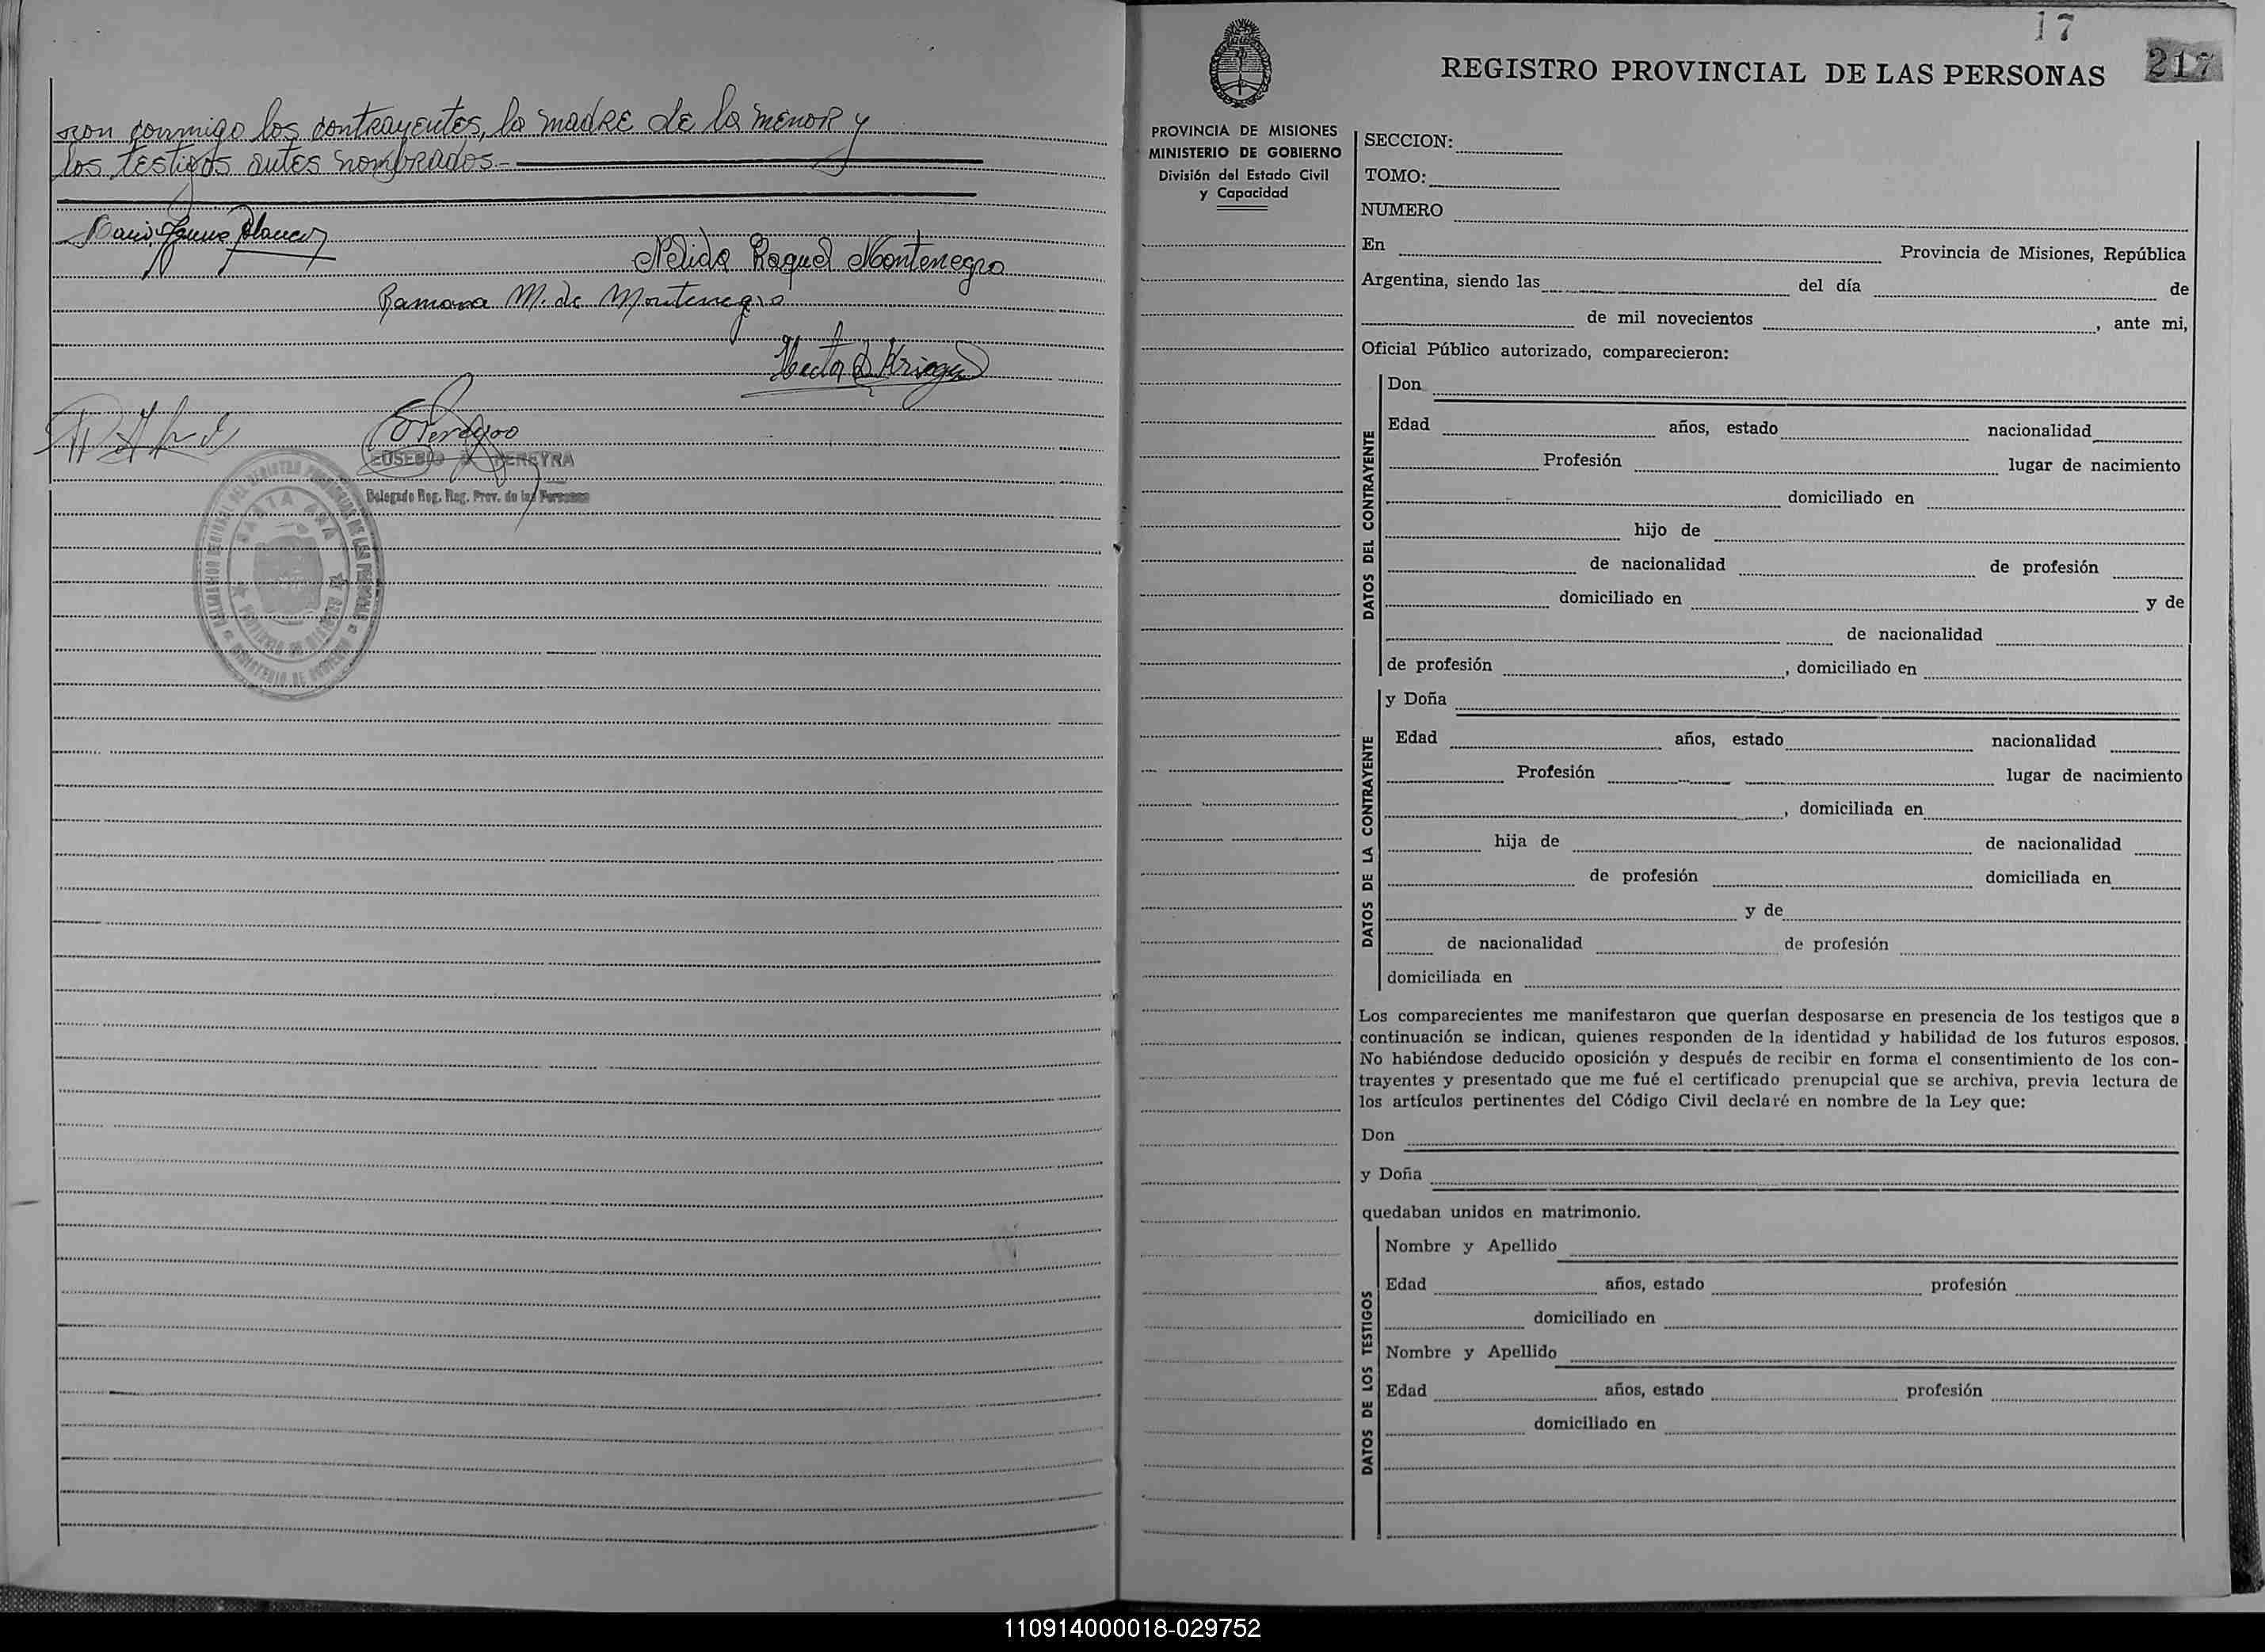 ron conmigo los contrayentes, la madre de la menor y
los testigos antes nombrados.-
Nelida Raquel Montenegro
Ramona M. de Montenegro
Hector
EUSEBIO PEREYRA
Delegado Reg. Reg. Prov. de las Personas
SANTA ANA
MINISTERIO DE GOBIERNO
17
217
REGISTRO PROVINCIAL DE LAS PERSONAS
PROVINCIA DE MISIONES
MINISTERIO DE GOBIERNO
División del Estado Civil
y Capacidad
SECCION:
TOMO:
NUMERO
En Provincia de Misiones, República
Argentina, siendo las del día de
de mil novecientos , ante mi,
Oficial Público autorizado, comparecieron:
DATOS DEL CONTRAYENTE
Don
Edad años, estado nacionalidad
Profesión lugar de nacimiento
domiciliado en
hijo de
de nacionalidad de profesión
domiciliado en y de
de nacionalidad
de profesión , domiciliado en
DATOS DE LA CONTRAYENTE
y Doña
Edad años, estado nacionalidad
Profesión lugar de nacimiento
, domiciliada en
hija de de nacionalidad
de profesión domiciliada en
y de
de nacionalidad de profesión
domiciliada en
Los comparecientes me manifestaron que querían desposarse en presencia de los testigos que a
continuación se indican, quienes responden de la identidad y habilidad de los futuros esposos.
No habiéndose deducido oposición y después de recibir en forma el consentimiento de los con-
trayentes y presentado que me fué el certificado prenupcial que se archiva, previa lectura de
los artículos pertinentes del Código Civil declaré en nombre de la Ley que:
Don
y Doña
quedaban unidos en matrimonio.
DATOS DE LOS TESTIGOS
Nombre y Apellido
Edad años, estado profesión
domiciliado en
Nombre y Apellido
Edad años, estado profesión
domiciliado en
110914000018-029752